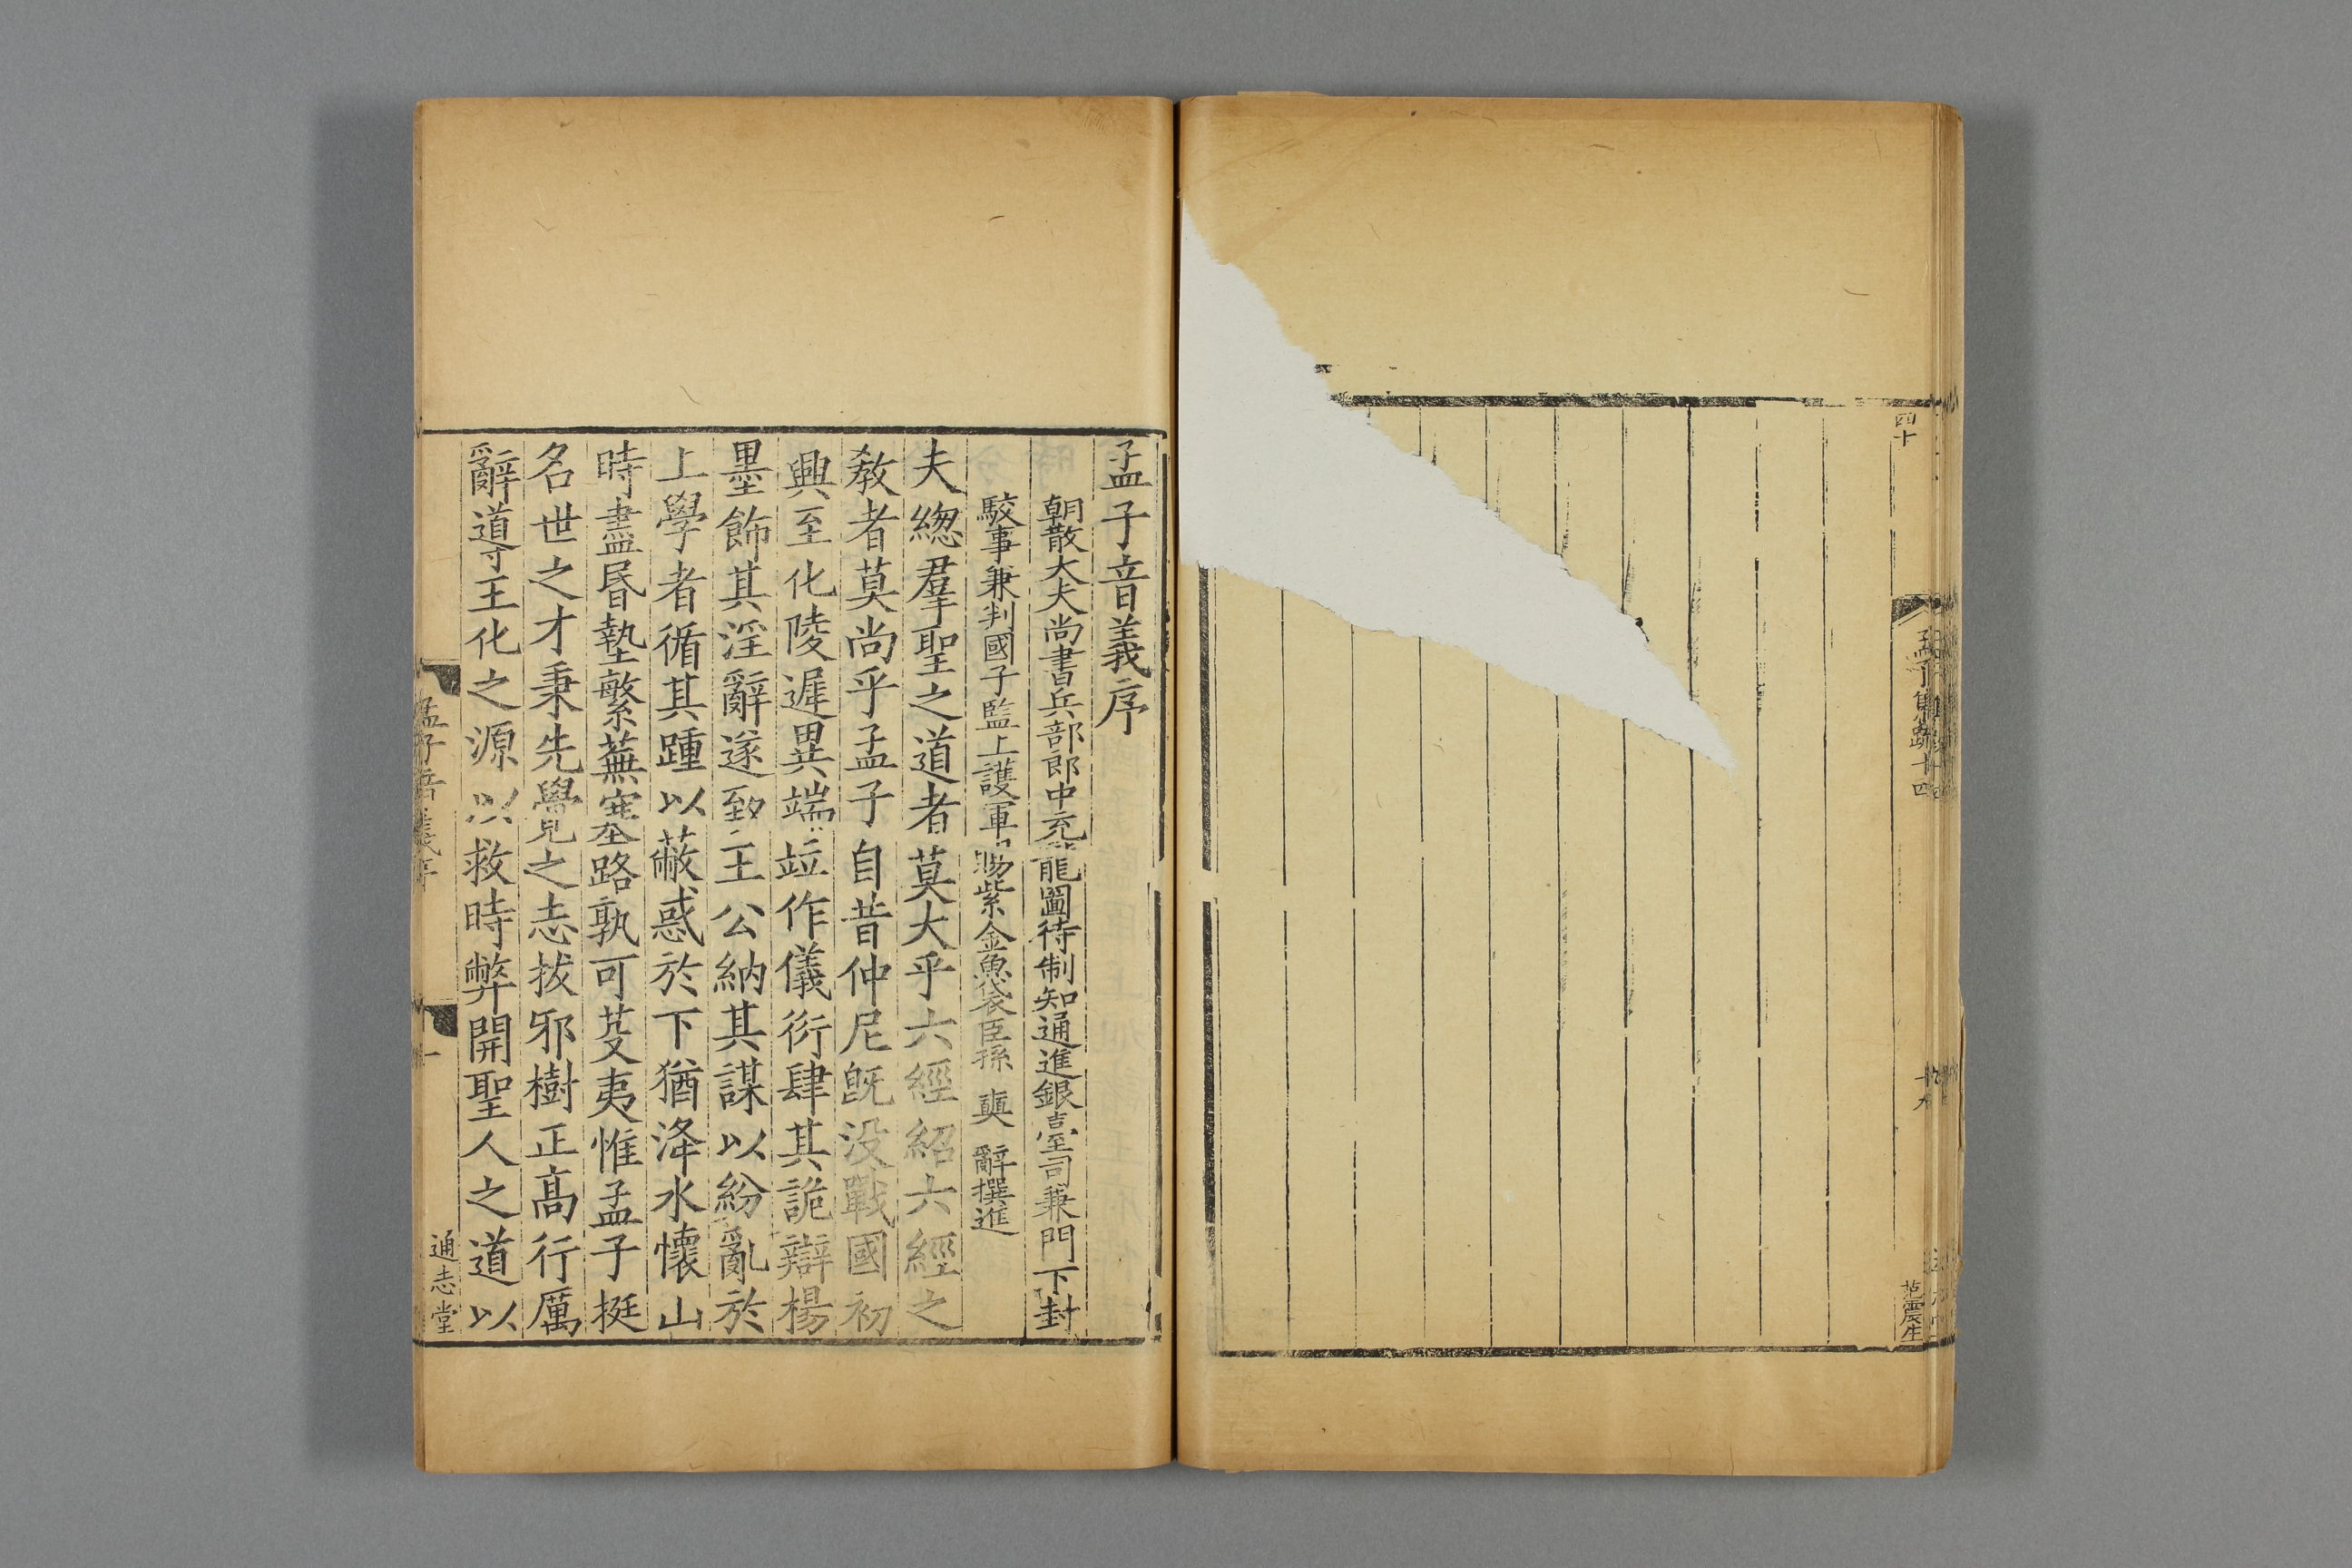 四十
孟子集疏十四
十九
范震生
孟子音義序
朝散大夫尚書兵部郎中充龍圖待制知通進銀臺司兼門下封
駮事兼判國子監上護軍賜紫金魚袋臣孫 奭 辭撰進
夫緫羣聖之道者莫大乎六經紹六經之
敎者莫尚乎孟子自昔仲尼旣没戰國初
興至化陵遲異端竝作儀衍肆其詭辯楊
墨飾其淫辭遂致王公納其謀以紛亂於
上學者循其踵以蔽惑於下猶洚水懷山
時盡昬墊繁蕪塞路孰可芟夷惟孟子挺
名世之才秉先覺之志拔邪樹正高行厲
辭導王化之源以救時弊開聖人之道以
孟子音義序
一
通志堂